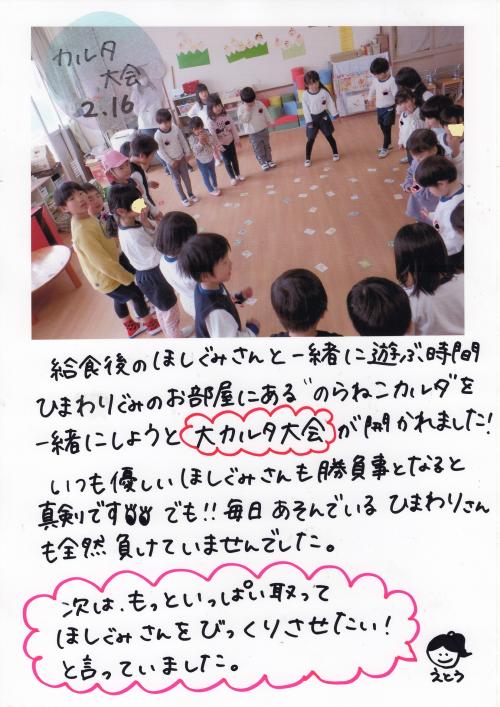 カルタ
大会
2.16
給食後のほしぐみさんと一緒に遊ぶ時間
ひまわりぐみのお部屋にある"のらねこカルタ"を
一緒にしようと大カルタ大会が開かれました!
いつも優しいほしぐみさんも勝負事となると
真剣です でも!!毎日あそんでいるひまわりさん
も全然負けていませんでした。
次は、もっといっぱい取って
ほしぐみさんをびっくりさせたい!
と言っていました。
えとう